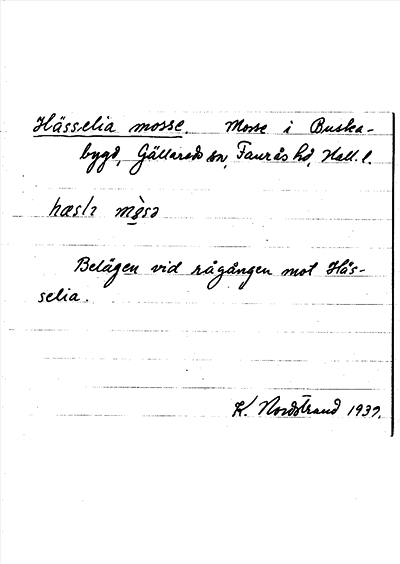 Hässelia mosse. Mosse i Buska-
bygd, Gällareds sn, Faurås hd, Hall. l.
Belägen vid rågången mot Häs-
selia.
K. Nordstrand 1937.